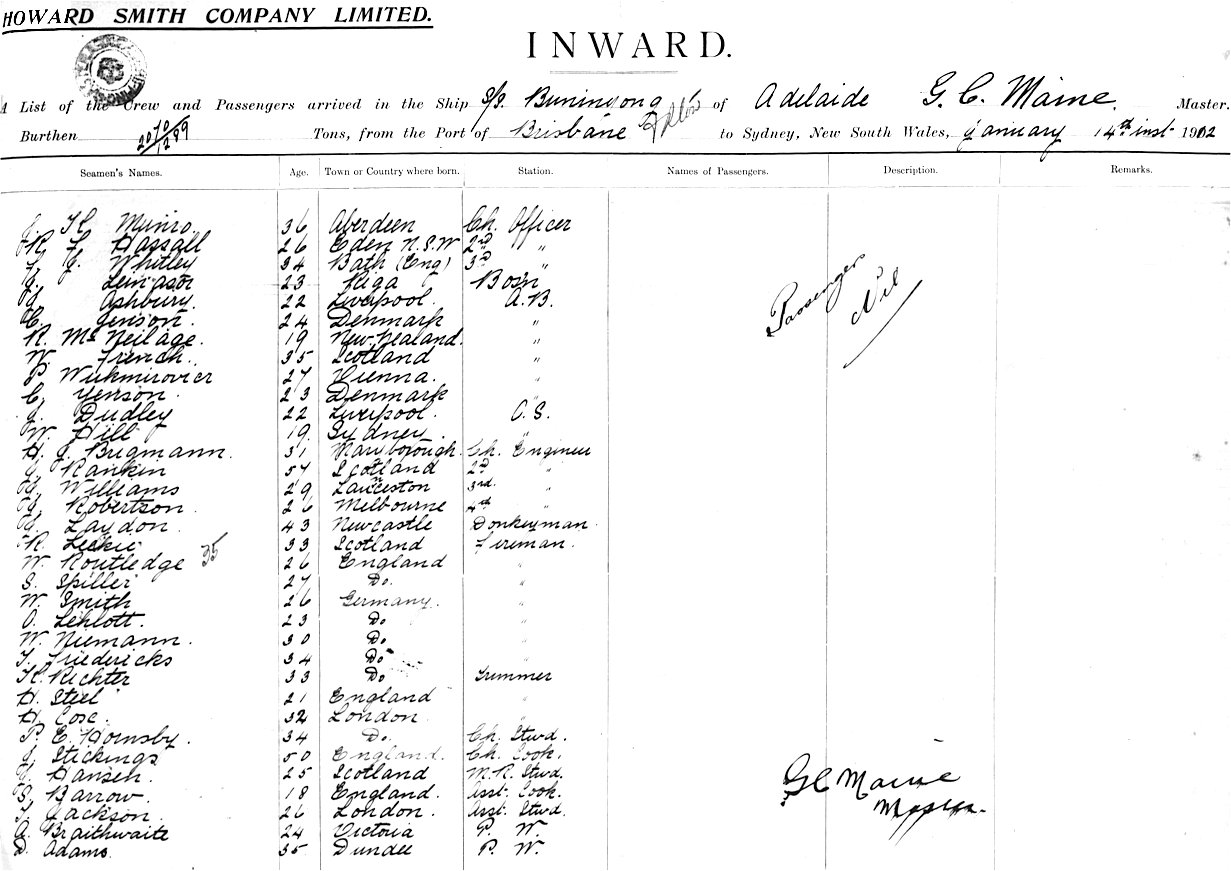 HOWARD SMITH COMPANY LIMITED.
INWARD.
A List of the Crew and Passengers arrived in the Ship S/S. Buninyong of Adelaide G. C. Maine. Master.
Burthen 2070/1289 Tons, from the Port of Brisbane to Sydney, New South Wales, January 14th inst 1912
Seamen's Names. Age. Town or Country where born. Station. Names of Passengers. Description. Remarks.
J. K. Munro. 36 Aberdeen Ch. Officer
R. F. Hassall 26 Eden N.S.W 2nd "
Whitley 34 Bath (Eng) 3rd "
23 Riga Bosn
Ashbury. 22 Liverpool. A.B.
C. Jenson. 24 Denmark "
R. Mc Neilage. 19 New Zealand. "
W. French. 35 Scotland "
P. Wukmirovier 27 Vienna. "
C. Yenson. 23 Denmark
J. Dudley 22 Liverpool. O.S.
W. Hill 19. Sydney. "
H. J. Brugmann. 31 Maryborough. Ch. Engineer
J. Rankin 57 Scotland 2nd "
Williams 29 Launceston 3rd. "
Robertson. 26 Melbourne 4th "
Laydon. 43 Newcastle Donkeyman.
R. Leckie 33 Scotland Fireman.
W. Routledge 35 26 England "
S. Spiller 27 Do. "
W. Smith 26 Germany. "
O. Lehlott. 23 Do "
W. Niemann. 30 Do "
F. Friedericks 34 Do "
K. Richter 33 Do Trimmer
H. Steel 21 England "
H. Cose. 32 London "
P. E. Hornsby. 34 Do. Ch. Stwd.
J. Stickings 50 England. Ch. Cook.
J. Hansen. 25 Scotland M.R. Stwd.
S. Barrow. 18 England. Asst. Cook.
T. Jackson. 26 London. Asst. Stwd.
A. Braithwaite 24 Victoria P. W.
D. Adams. 35 Dundee P. W.
Passengers
Nil
G C Maine
Master.